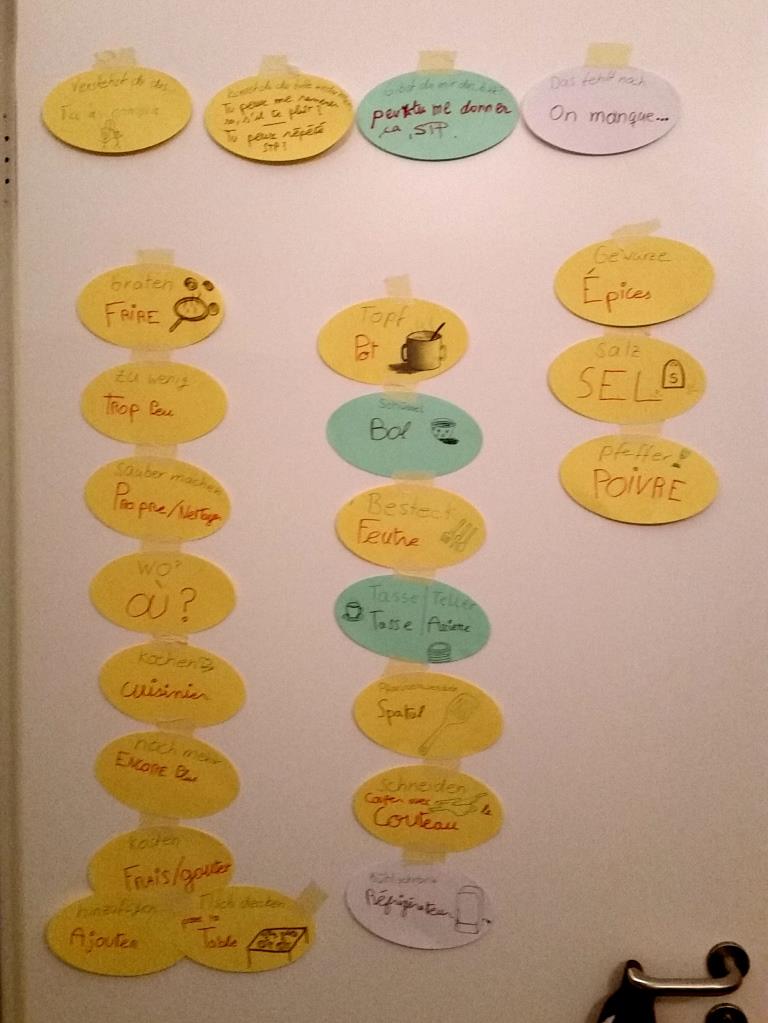 Verstehst du das
Tu as compris
Tu peux me ramener
ça, s'il te plaît?
Tu peux répété
STP?
gibst du mir das bitte
peux tu me donner
ça, STP.
Das fehlt noch
On manque...
braten
FRIRE
zu wenig
Trop peu
sauber machen
Propre/Nettoyer
WO?
OÙ?
kochen
cuisinier
noch mehr
ENCORE Plus
kosten
FRAIS/gouter
hinzufügen
Ajouter
Tisch decken
Table
Topf
Pot
Schüssel
Bol
Besteck
Tasse/Teller
Tasse/Assiette
Pfannenwender
Spatul
schneiden
Couper avec le
Couteau
Kühlschrank
Réfrigérateur
Gewürze
Épices
Salz
SEL
S
Pfeffer
POIVRE